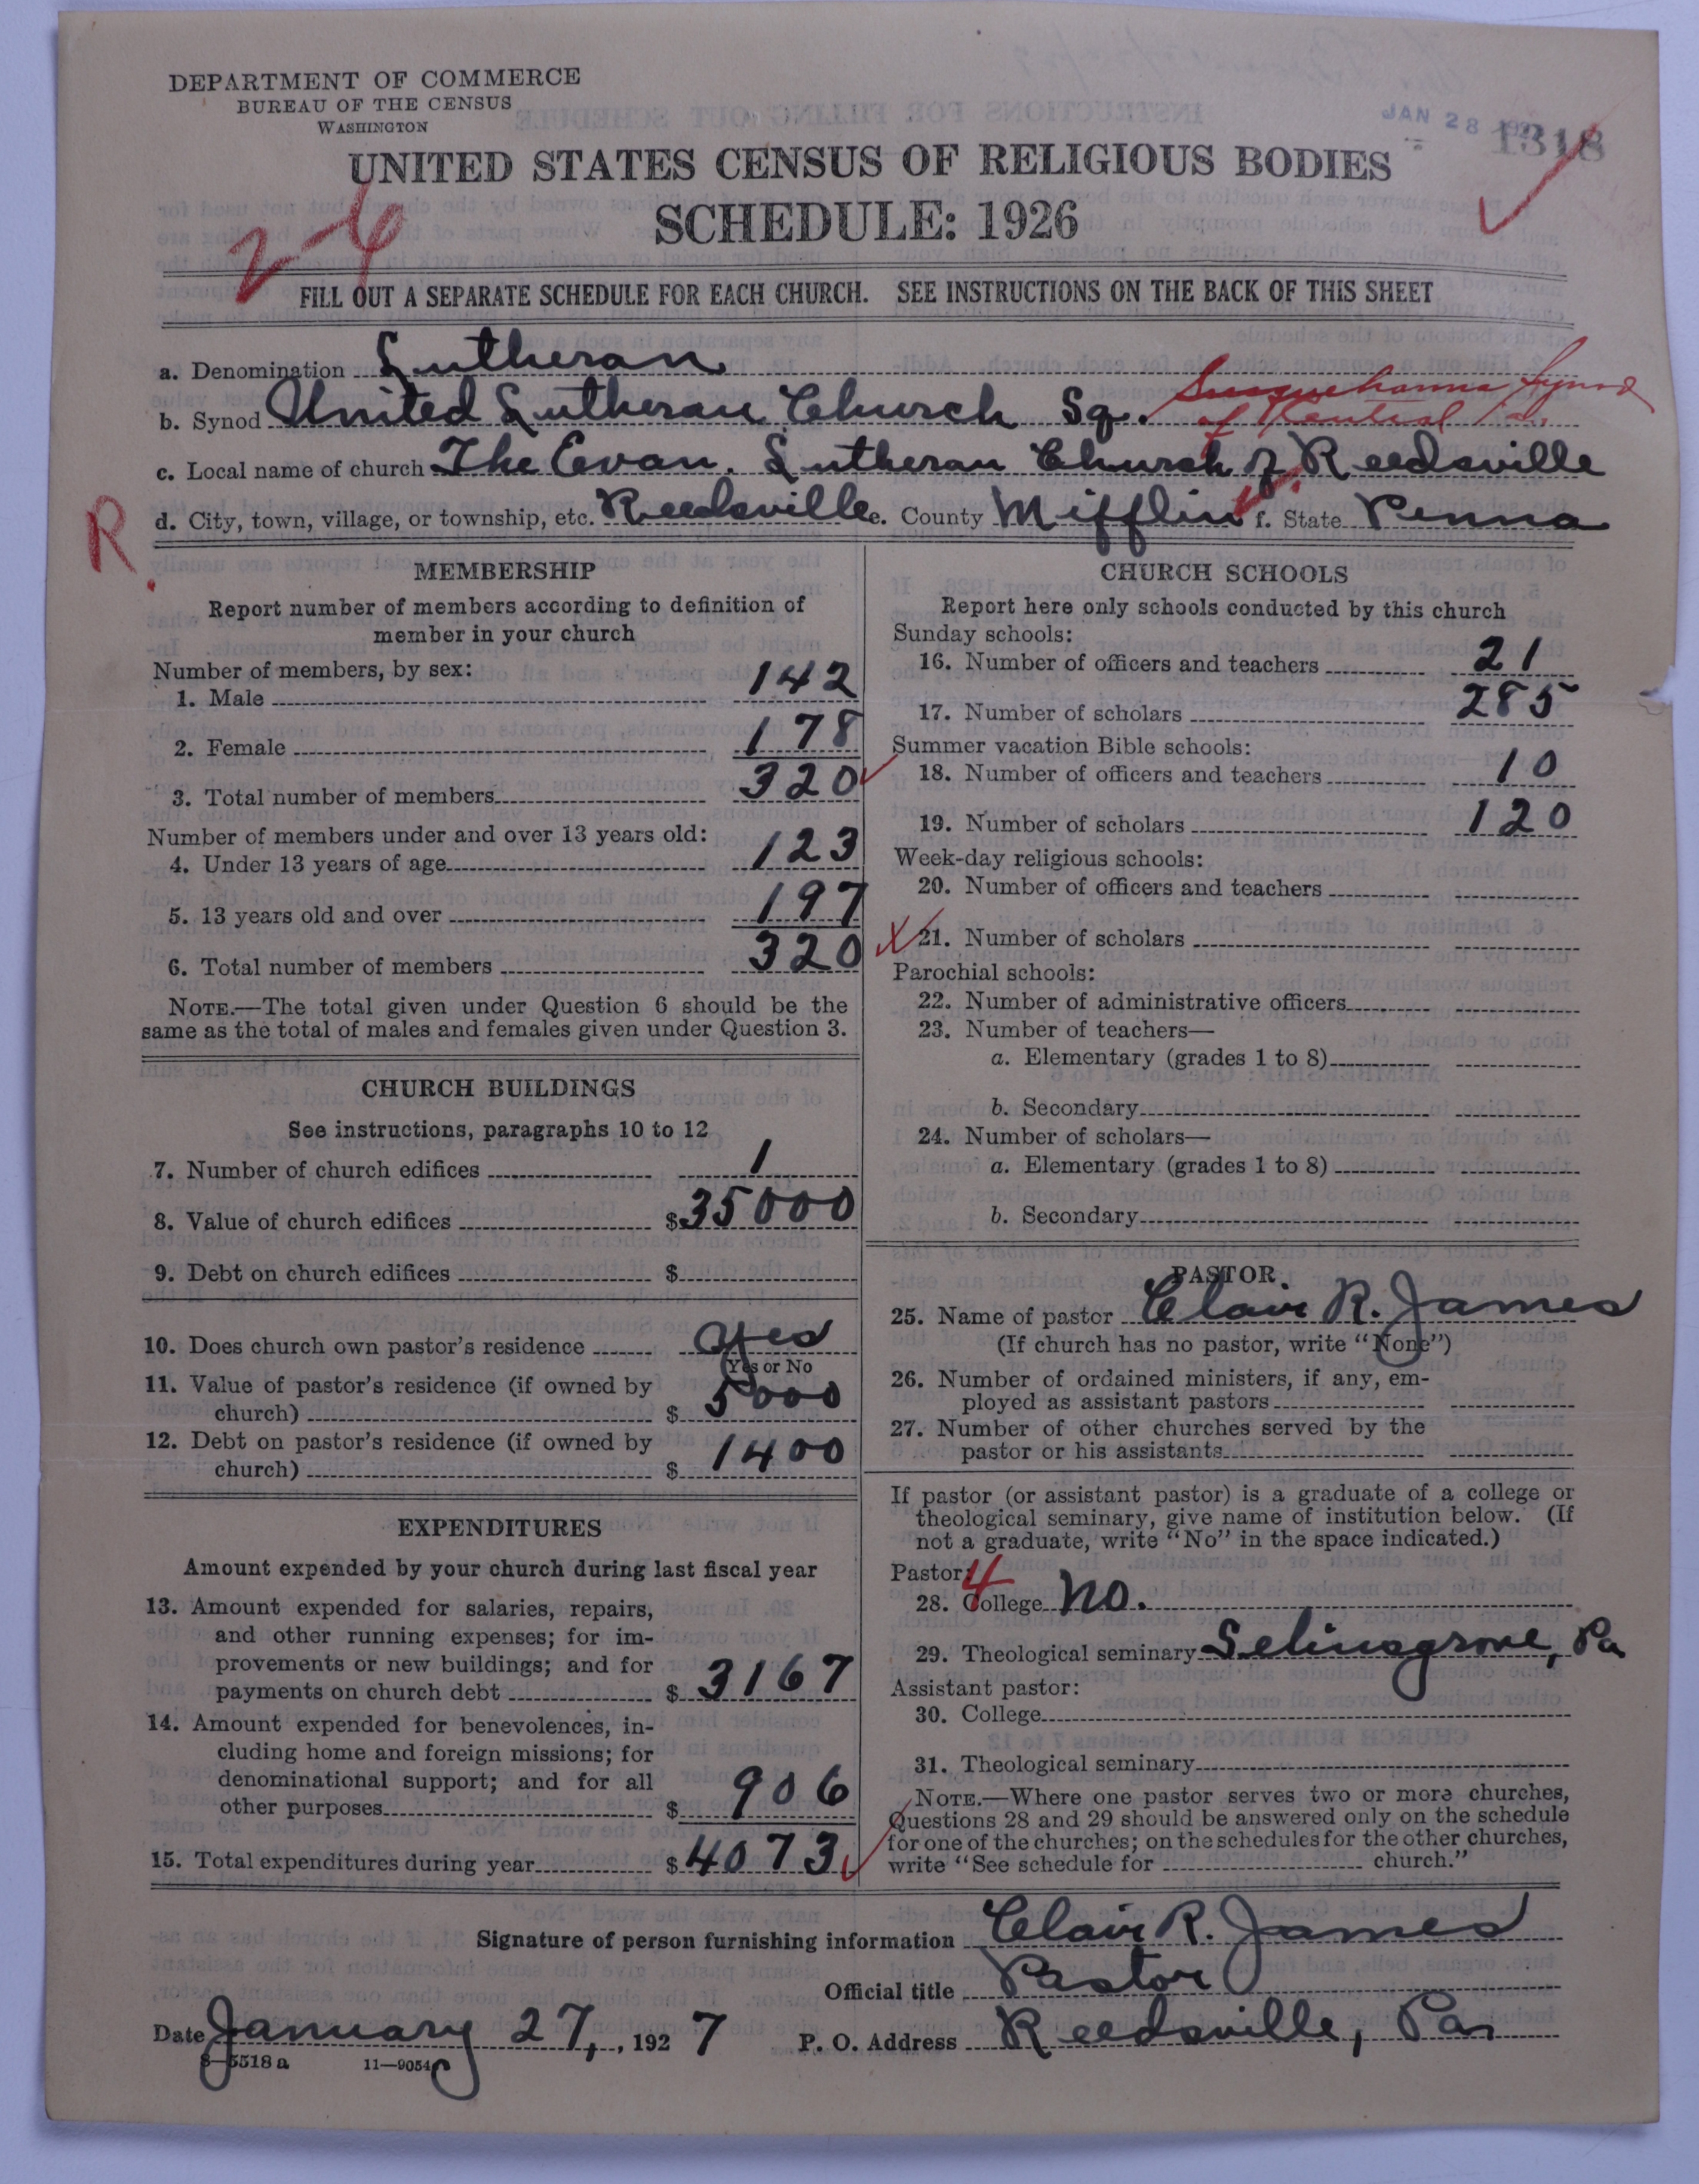 DEPARTMENT OF COMMERCE
BUREAU OF THE CENSUS
WASHINGTON
JAN 28
1318
UNITED STATES CENSUS OF RELIGIOUS BODIES
SCHEDULE: 1926
2-6
FILL OUT A SEPARATE SCHEDULE FOR EACH CHURCH. SEE INSTRUCTIONS ON THE BACK OF THIS SHEET
a. Denomination Lutheran
b. Synod United Lutheran Church Sq. Susquehanna Synod of Central Pa.
c. Local name of church The Evan. Lutheran Church of Reedsville
R. d. City, town, village, or township, etc. Reedsville e. County Mifflin f. State Penna
MEMBERSHIP
Report number of members according to definition of
member in your church
Number of members, by sex:
1. Male 142
2. Female 178
3. Total number of members 320
Number of members under and over 13 years old:
4. Under 13 years of age 123
5. 13 years old and over 197
6. Total number of members 320
NOTE.—The total given under Question 6 should be the
same as the total of males and females given under Question 3.
CHURCH BUILDINGS
See instructions, paragraphs 10 to 12
7. Number of church edifices 1
8. Value of church edifices $ 35000
9. Debt on church edifices $
10. Does church own pastor's residence Yes
(Yes or No
11. Value of pastor's residence (if owned by
church) $ 5000
12. Debt on pastor's residence (if owned by
church) $ 1400
EXPENDITURES
Amount expended by your church during last fiscal year
13. Amount expended for salaries, repairs,
and other running expenses; for im-
provements or new buildings; and for
payments on church debt $ 3167
14. Amount expended for benevolences, in-
cluding home and foreign missions; for
denominational support; and for all
other purposes $ 906
15. Total expenditures during year $ 4073
CHURCH SCHOOLS
Report here only schools conducted by this church
Sunday schools:
16. Number of officers and teachers 21
17. Number of scholars 285
Summer vacation Bible schools:
18. Number of officers and teachers 10
19. Number of scholars 120
Week-day religious schools:
20. Number of officers and teachers
21. Number of scholars
Parochial schools:
22. Number of administrative officers
23. Number of teachers—
a. Elementary (grades 1 to 8)
b. Secondary
24. Number of scholars—
a. Elementary (grades 1 to 8)
b. Secondary
PASTOR
25. Name of pastor Clair R. James
(If church has no pastor, write "None")
26. Number of ordained ministers, if any, em-
ployed as assistant pastors
27. Number of other churches served by the
pastor or his assistants
If pastor (or assistant pastor) is a graduate of a college or
theological seminary, give name of institution below. (If
not a graduate, write "No" in the space indicated.)
Pastor: 4
28. College No.
29. Theological seminary Selinsgrove, Pa
Assistant pastor:
30. College
31. Theological seminary
NOTE.—Where one pastor serves two or more churches,
Questions 28 and 29 should be answered only on the schedule
for one of the churches; on the schedules for the other churches,
write "See schedule for church."
Signature of person furnishing information Clair R. James
Official title Pastor
Date January 27, , 192 7 P. O. Address Reedsville, Pa
8—5518 a 11—9054